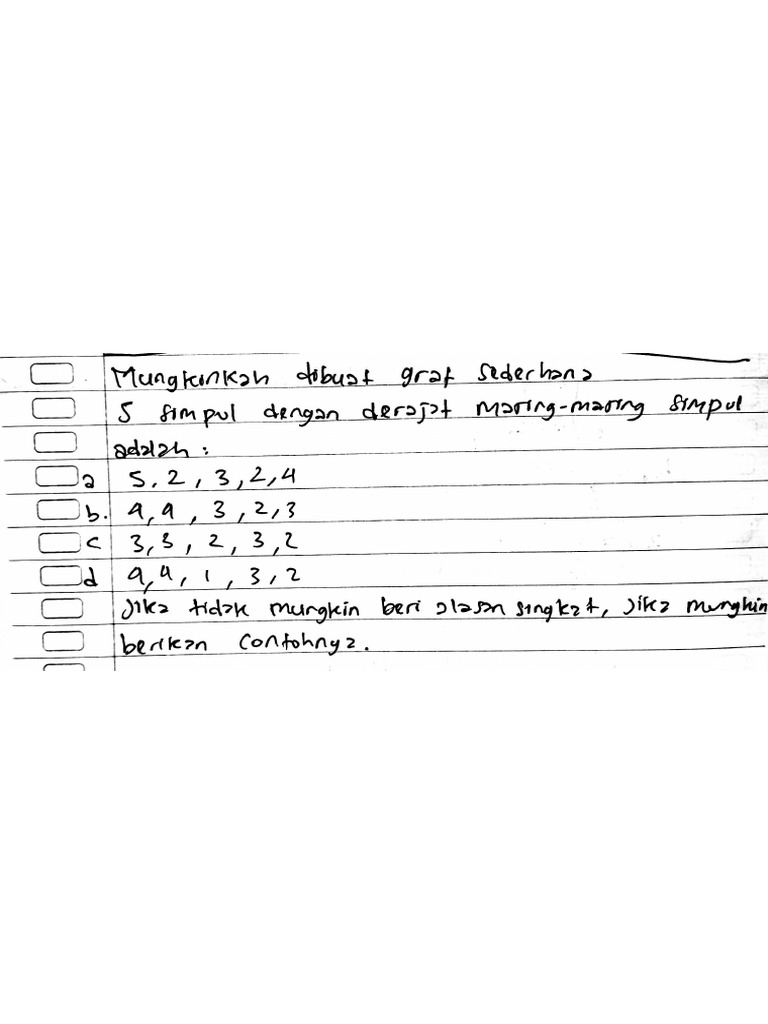 Mungkinkah dibuat graf sederhana
5 simpul dengan derajat masing-masing simpul
adalah :
a 5, 2, 3, 2, 4
b. 4, 4, 3, 2, 3
c 3, 3, 2, 3, 2
d 4, 4, 1, 3, 2
Jika tidak mungkin beri alasan singkat, Jika mungkin
berikan contohnya.